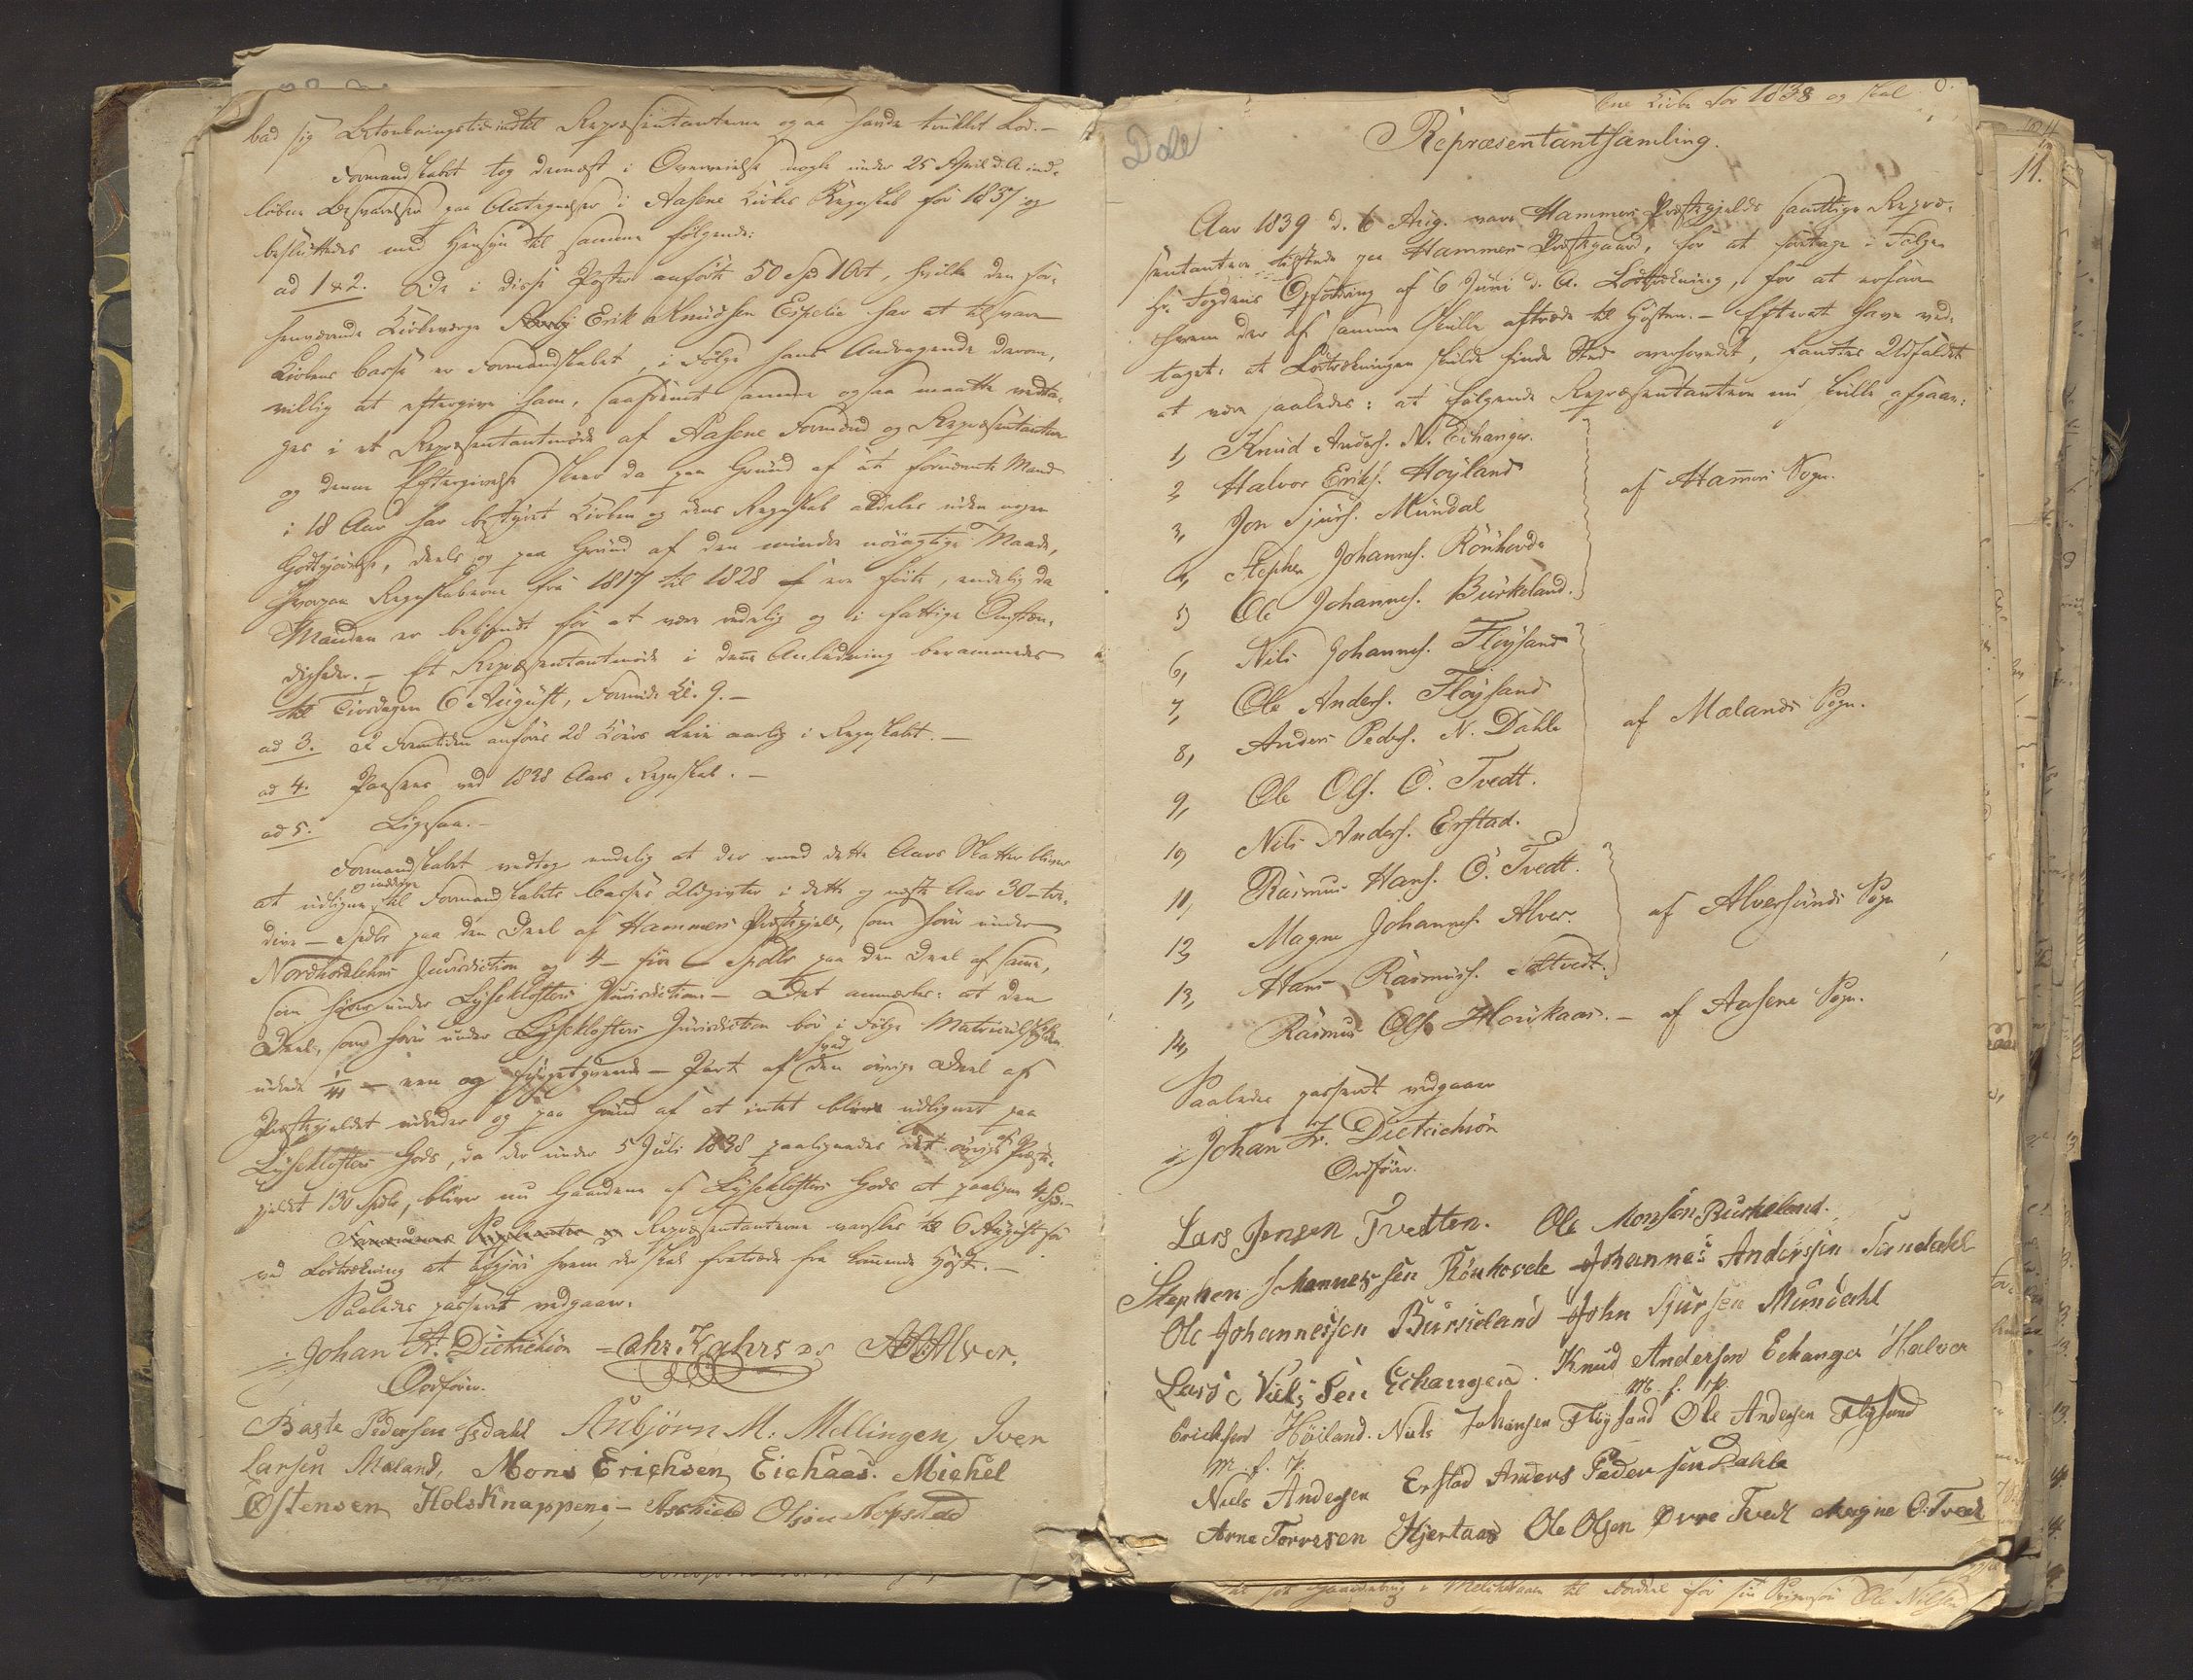 bad sig Betænkningstid indtil Repræsentanterne ogsaa havde trukket Lod. –
Formandskabet tog dernæst i Overveielse nogle under 25 April d. A. ind-
løbne Besvarelser paa Antegnelser i Aasene Kirkes Regnskab for 1837 og
besluttedes med Hensyn til samme følgende:
ad 1 & 2. De i disse Poster anførte 50 Spd 1 Ort, hvilke den for-
henværende Kirkeværge Erik Knudsen Espelie har at tilsvare
Kirkens Casse er Formandskabet, i Følge hans Andragende derom,
villig at eftergive ham, saafremt samme ogsaa maatte vedta-
ges i et Repræsentantmøde af Aasene Formænd og Repræsentanter
og denne Eftergivelse skeer da paa Grund af at forнævnte Mand
i 18 Aar har bestyret Kirken og dens Regnskab aldeles uden nogen
Godtgjørelse, deels og paa Grund af den mindre nøiagtige Maade,
hvorpaa Regnskaberne fra 1817 til 1828 ere førte, endelig da
Manden er bekjendt for at være redelig og i fattige Omstæn-
digheder. – Et Repræsentantmøde i denne Anledning berammedes
til Tirsdagen 6 August, Formid. Kl. 9. –
ad 3. I Fremtiden anføres 28 Køers Leie aarlig i Regnskabet. –
ad 4. Passeres ved 1838 Aars Regnskab. –
ad 5. Ligesaa. –
Formandskabet vedtog endelig at der med dette Aars Skatter bliver
og inddrive
at udligne til Formandskabets Casses Udgivter i dette og næste Aar 30 – tre-
dive – Spdlr paa den Deel af Hammers Præstegjeld, som hører under
Nordhordlehns Jurisdiction og 4 – fire – Spdlr paa den Deel af samme,
som hører under Lyseklosters Jurisdiction – Det anmærkes: at den
Deel, som hører under Lyseklosters Jurisdiction bør i Følge Matricul
udrede 1/41 – een og fyrgetyvende – Part af hvad den øvrige Deel af
Præstegjeldet udreder og paa Grund af at intet blev udlignet paa
Lyseklosters Gods, da der under 5 Juli 1838 paalignedes det øvrige af Præste-
gjeldet 130 Spdlr, bliver nu Gaardene af Lyseklosters Gods at paaligne 4 Spd. –
Repræsentanterne varsles til 6 August for
ved Lodtrækning at afgjøre hvem der skal fratræde fra kommende Høst. –
Saaledes passeret vedgaaer.
Johan Fr. Dietrichson Chr. Kahrs AOAlver.
Ordfører.
Baste Pedersen Isdahl Anbjørn M: Mellingen, Iver
Larsen Mæland, Mons Erichsen Eichaas. Michel
Østensen Holsknappen, – Olsen Nopstad
Dale
Kirke for 1838 og skal
Repræsentantsamling.
Aar 1839 d. 6 Aug. vare Hammers Præstegjelds samtlige Repræ-
sentanter tilstede paa Hammers Præstegaard, for at foretage i Følge
Hr. Fogdens Opfordring af 6 Juni d. A. Lodtrækning, for at erfare
hvem der af samme skulle aftræde til Høsten. – Efterat have ved-
taget: at Lodtrækningen skulde finde Sted overhovedet, fandtes Udfaldet
at være saaledes: at følgende Repræsentanter nu skulle afgaae:
1, Knud Anders. N. Eichanger.
2, Halvor Eriks. Høyland
3, Jon Sjurs. Mundal
4, Stephen Johannes. Rönhovde
5, Ole Johannes. Burkeland.
af Hammers Sogn.
6, Nils Johannes. Fløysand
7, Ole Anders. Fløysand
8, Anders Peders. N. Dahle
9, Ole Ols. Ö. Tvedt.
10, Nils Anders. Erstad.
af Mælands Sogn.
11, Rasmus Hans. Ö. Tvedt.
12, Magne Johannes. Alver.
13, Hans Rasmuss. Soltvedt.
af Alversunds Sogn
14, Rasmus Ols. Haukaas. – af Aasene Sogn.
Saaledes passeret vedgaaer
Johan Fr. Dietrichson
Ordfører.
Lars Jensen Tvedten. Ole Monsen Burkeland.
Stephen Johannessen Rönhovde Johannes Anderssen Sundahl
Ole Johannessen Burkeland John Sjursen Mundahl
Lars Niels Sen Echangen. Knud Andersen Echanger Halvor
m. f. P.
Erichsen Höiland. Niels Johansen Fløysand Ole Andersen Fløysand
m. f. P.
Niels Andersen Erstad Anders Peder sen Dahle
Arne Torvesen Hjertaas Ole Olsen Øvre Tvedt Magne O. Tvedt
11.
til Ole Nilsen